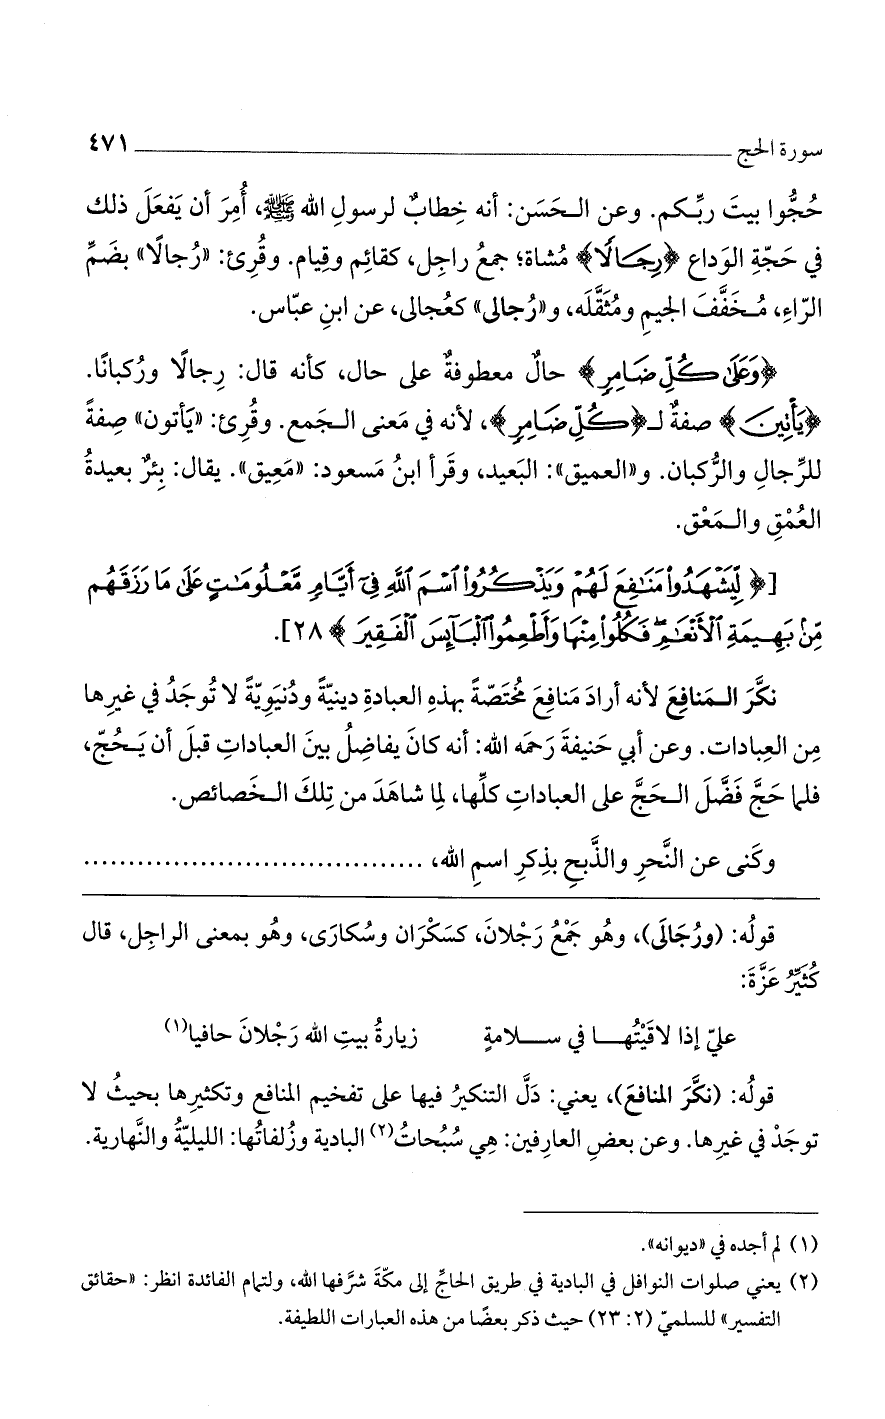 سورة الحج ٤٧١
حُجُّوا بيتَ ربِّكم. وعن الـحَسَن: أنه خِطابٌ لرسولِ الله ﷺ، أُمِرَ أن يَفعَلَ ذلك
في حَجّةِ الوَداع ﴿رِجَالًا﴾ مُشاة؛ جمعُ راجِل، كقائِم وقِيام. وقُرِئ: «رُجالًا» بضَمِّ
الرّاءِ، مُـخَفَّفَ الجيمِ ومُثَقَّلَه، و«رُجالى» كعُجالى، عن ابنِ عبّاس.
﴿وَعَلَىٰ كُلِّ ضَامِرٍ﴾ حالٌ معطوفةٌ على حال، كأنه قال: رِجالًا ورُكبانًا.
﴿يَأْتِينَ﴾ صفةٌ لـ﴿كُلِّ ضَامِرٍ﴾، لأنه في مَعنى الـجَمع. وقُرِئ: «يَأتون» صِفةً
للرِّجالِ والرُّكبان. و«العميق»: البَعيد، وقَرأ ابنُ مَسعود: «مَعِيق». يقال: بِئرٌ بعيدةُ
العُمْقِ والـمَعْق.
[﴿لِّيَشْهَدُوا۟ مَنَـٰفِعَ لَهُمْ وَيَذْكُرُوا۟ ٱسْمَ ٱللَّهِ فِىٓ أَيَّامٍ مَّعْلُومَـٰتٍ عَلَىٰ مَا رَزَقَهُم
مِّنۢ بَهِيمَةِ ٱلْأَنْعَـٰمِ ۖ فَكُلُوا۟ مِنْهَا وَأَطْعِمُوا۟ ٱلْبَآئِسَ ٱلْفَقِيرَ﴾ ٢٨].
نكَّرَ الـمَنافِعَ لأنه أرادَ مَنافِعَ مُختَصّةً بهذهِ العبادةِ دينيّةً ودُنيَوِيّةً لا تُوجَدُ في غيرِها
مِن العِبادات. وعن أبي حَنيفةَ رَحمَه الله: أنه كانَ يفاضِلُ بينَ العباداتِ قبلَ أن يَـحُجّ،
فلما حَجَّ فَضَّلَ الـحَجَّ على العباداتِ كلِّها، لِما شاهَدَ من تِلكَ الـخَصائص.
وكَنى عن النَّحرِ والذَّبحِ بذِكرِ اسمِ الله، ......................................
قولُه: (ورُجَالَى)، وهُو جَمْعُ رَجْلانَ، كسَكْرَان وسُكارَى، وهُو بمعنى الراجِل، قال
كُثَيِّرُ عَزَّةَ:
عليّ إذا لاقَيْتُهــا في ســلامةٍ زيارةُ بيتِ الله رَجْلانَ حافيا(١)
قولُه: (نكَّرَ المنافعَ)، يعني: دَلَّ التنكيرُ فيها على تفخيمِ المنافعِ وتكثيرِها بحيثُ لا
توجَدْ في غيرِها. وعن بعضِ العارِفين: هِي سُبُحاتُ(٢) البادية وزُلفاتُها: الليليّةُ والنَّهارية.
(١) لم أجده في «ديوانه».
(٢) يعني صلوات النوافل في البادية في طريق الحاجِّ إلى مكّةَ شرَّفها الله، ولتمام الفائدة انظر: «حقائق
التفسير» للسلميّ (٢: ٢٣) حيث ذكر بعضًا من هذه العبارات اللطيفة.